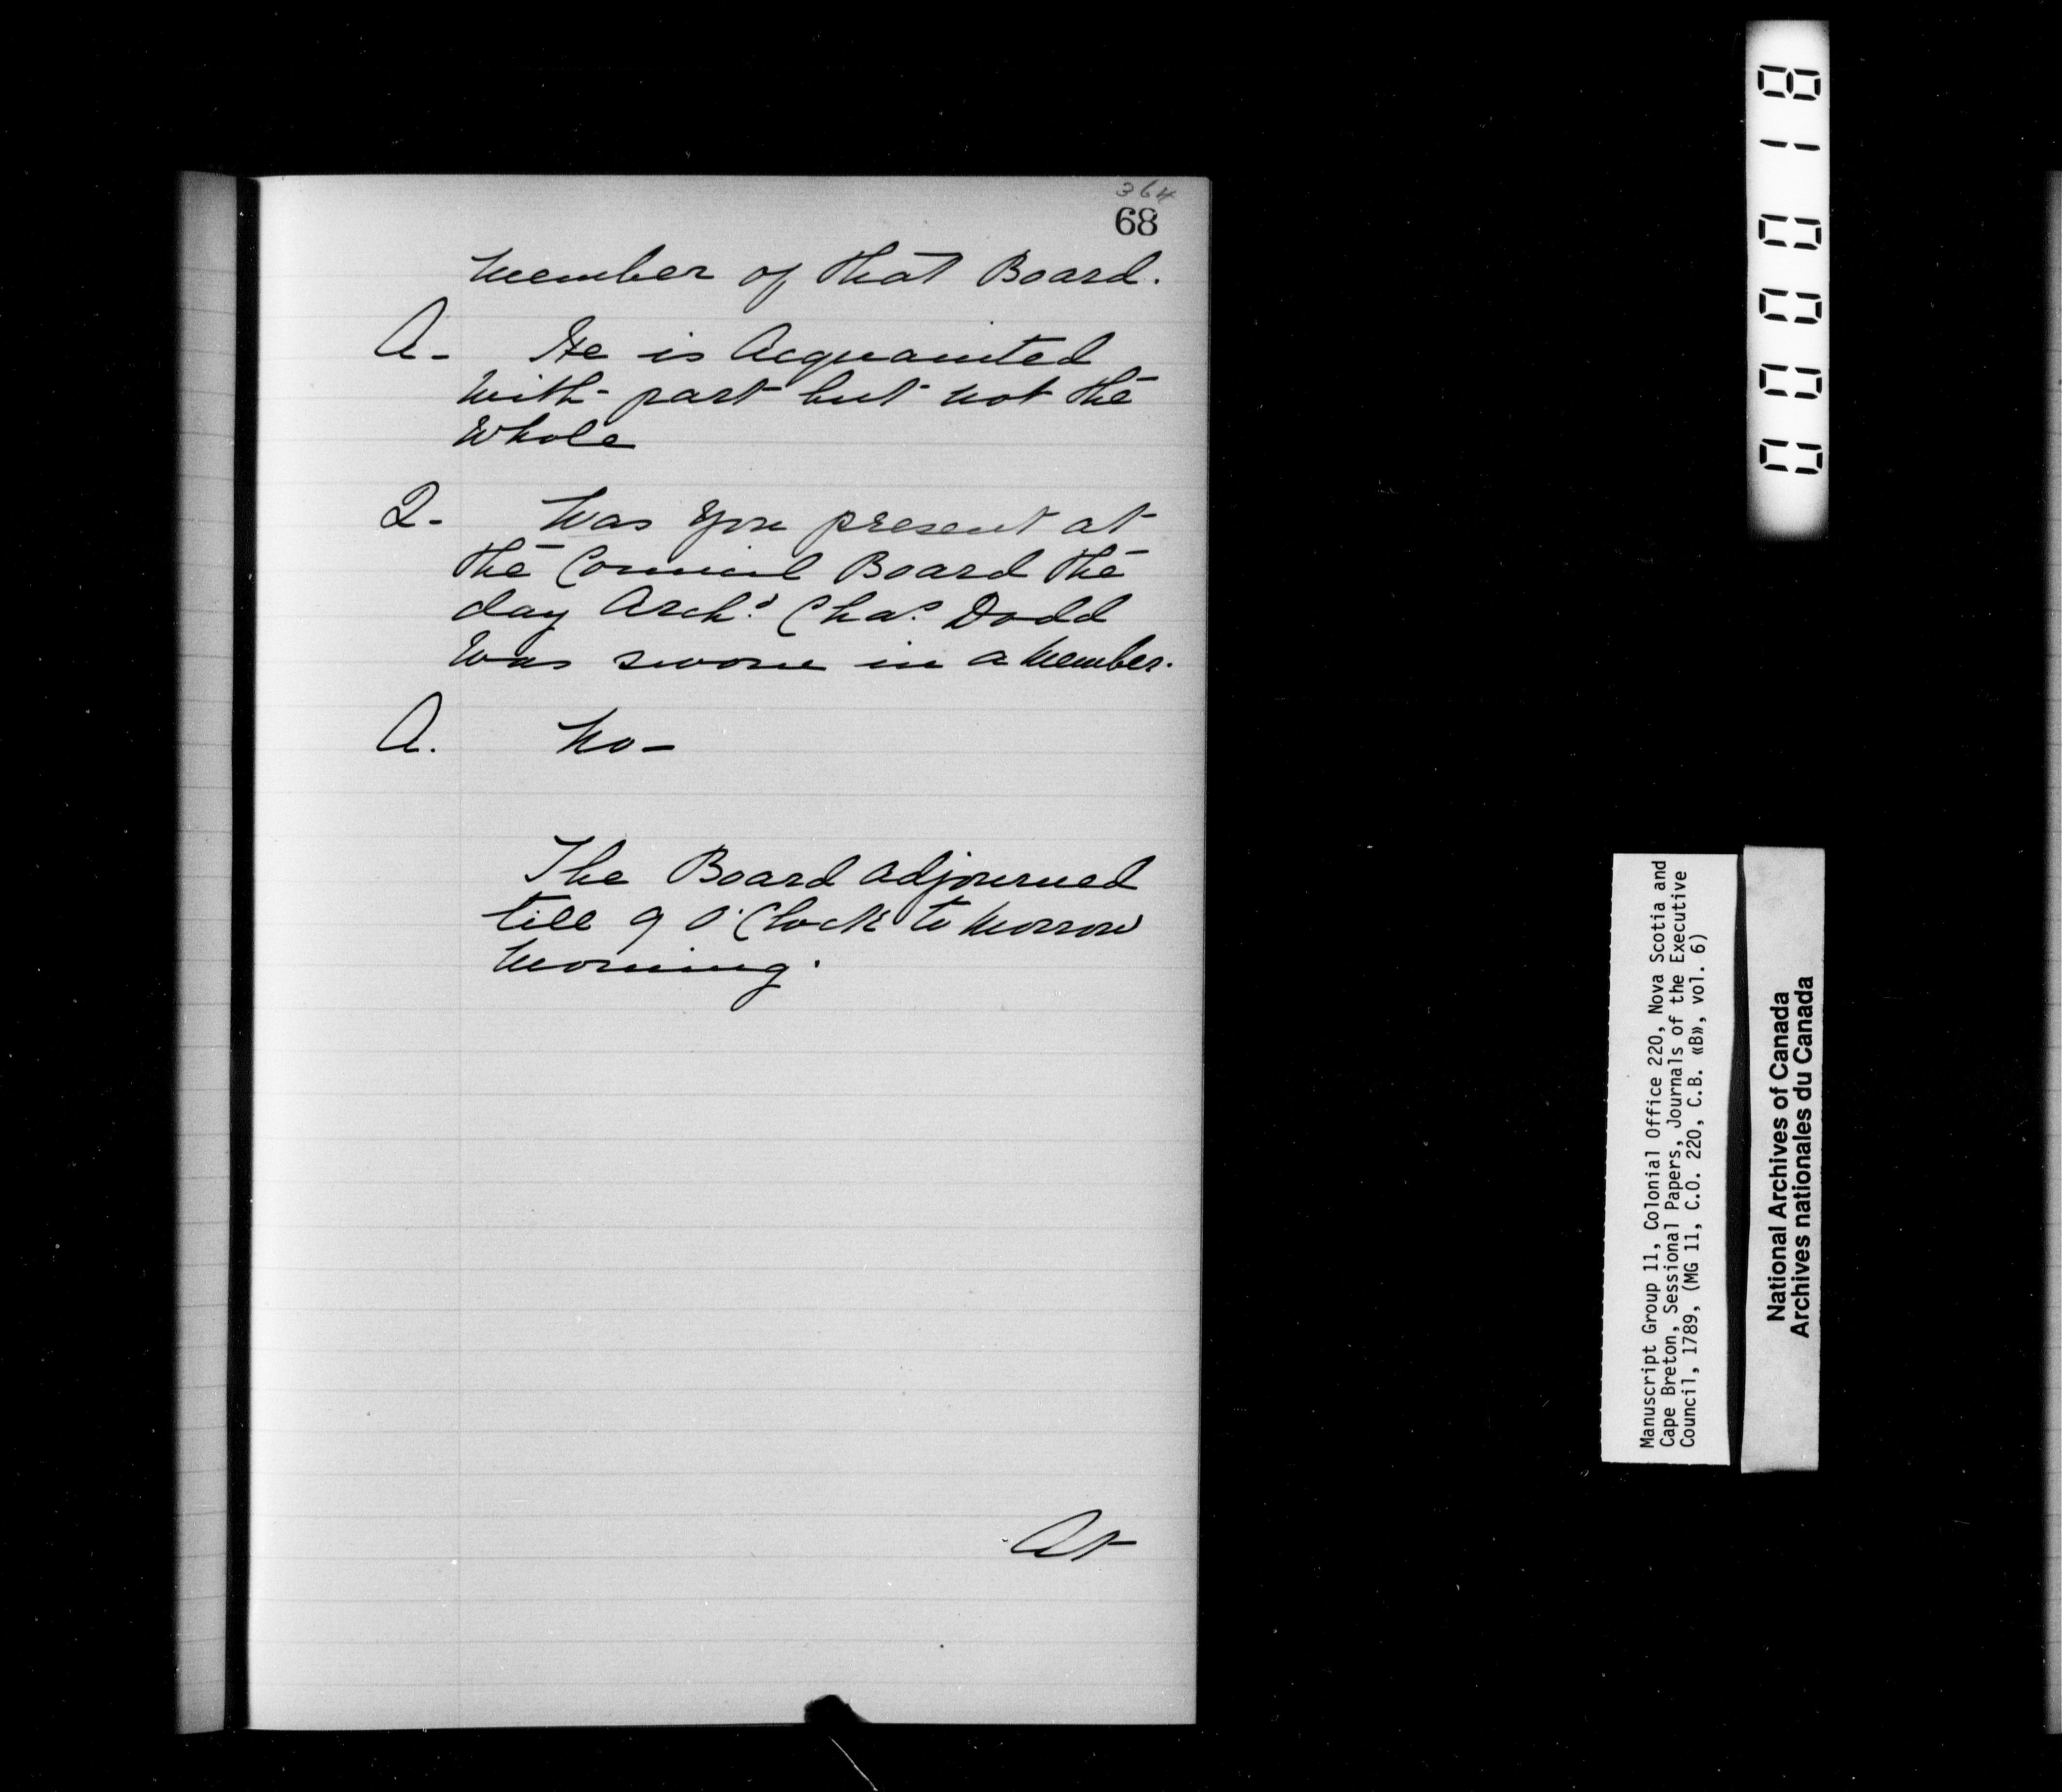 364
68
Member of that Board.
A- He is Acquainted
With- part but not the
Whole
Q- Was You present at
the Council Board the
day Archd. Chas. Dodd
Was sworn in a Member.
A. No-
The Board adjourned
till 9 O'Clock to Morrow
Morning.
At
000018
Manuscript Group 11, Colonial Office 220, Nova Scotia and
Cape Breton, Sessional Papers, Journals of the Executive
Council, 1789, (MG 11, C.O. 220, C.B. «B», vol. 6)
National Archives of Canada
Archives nationales du Canada